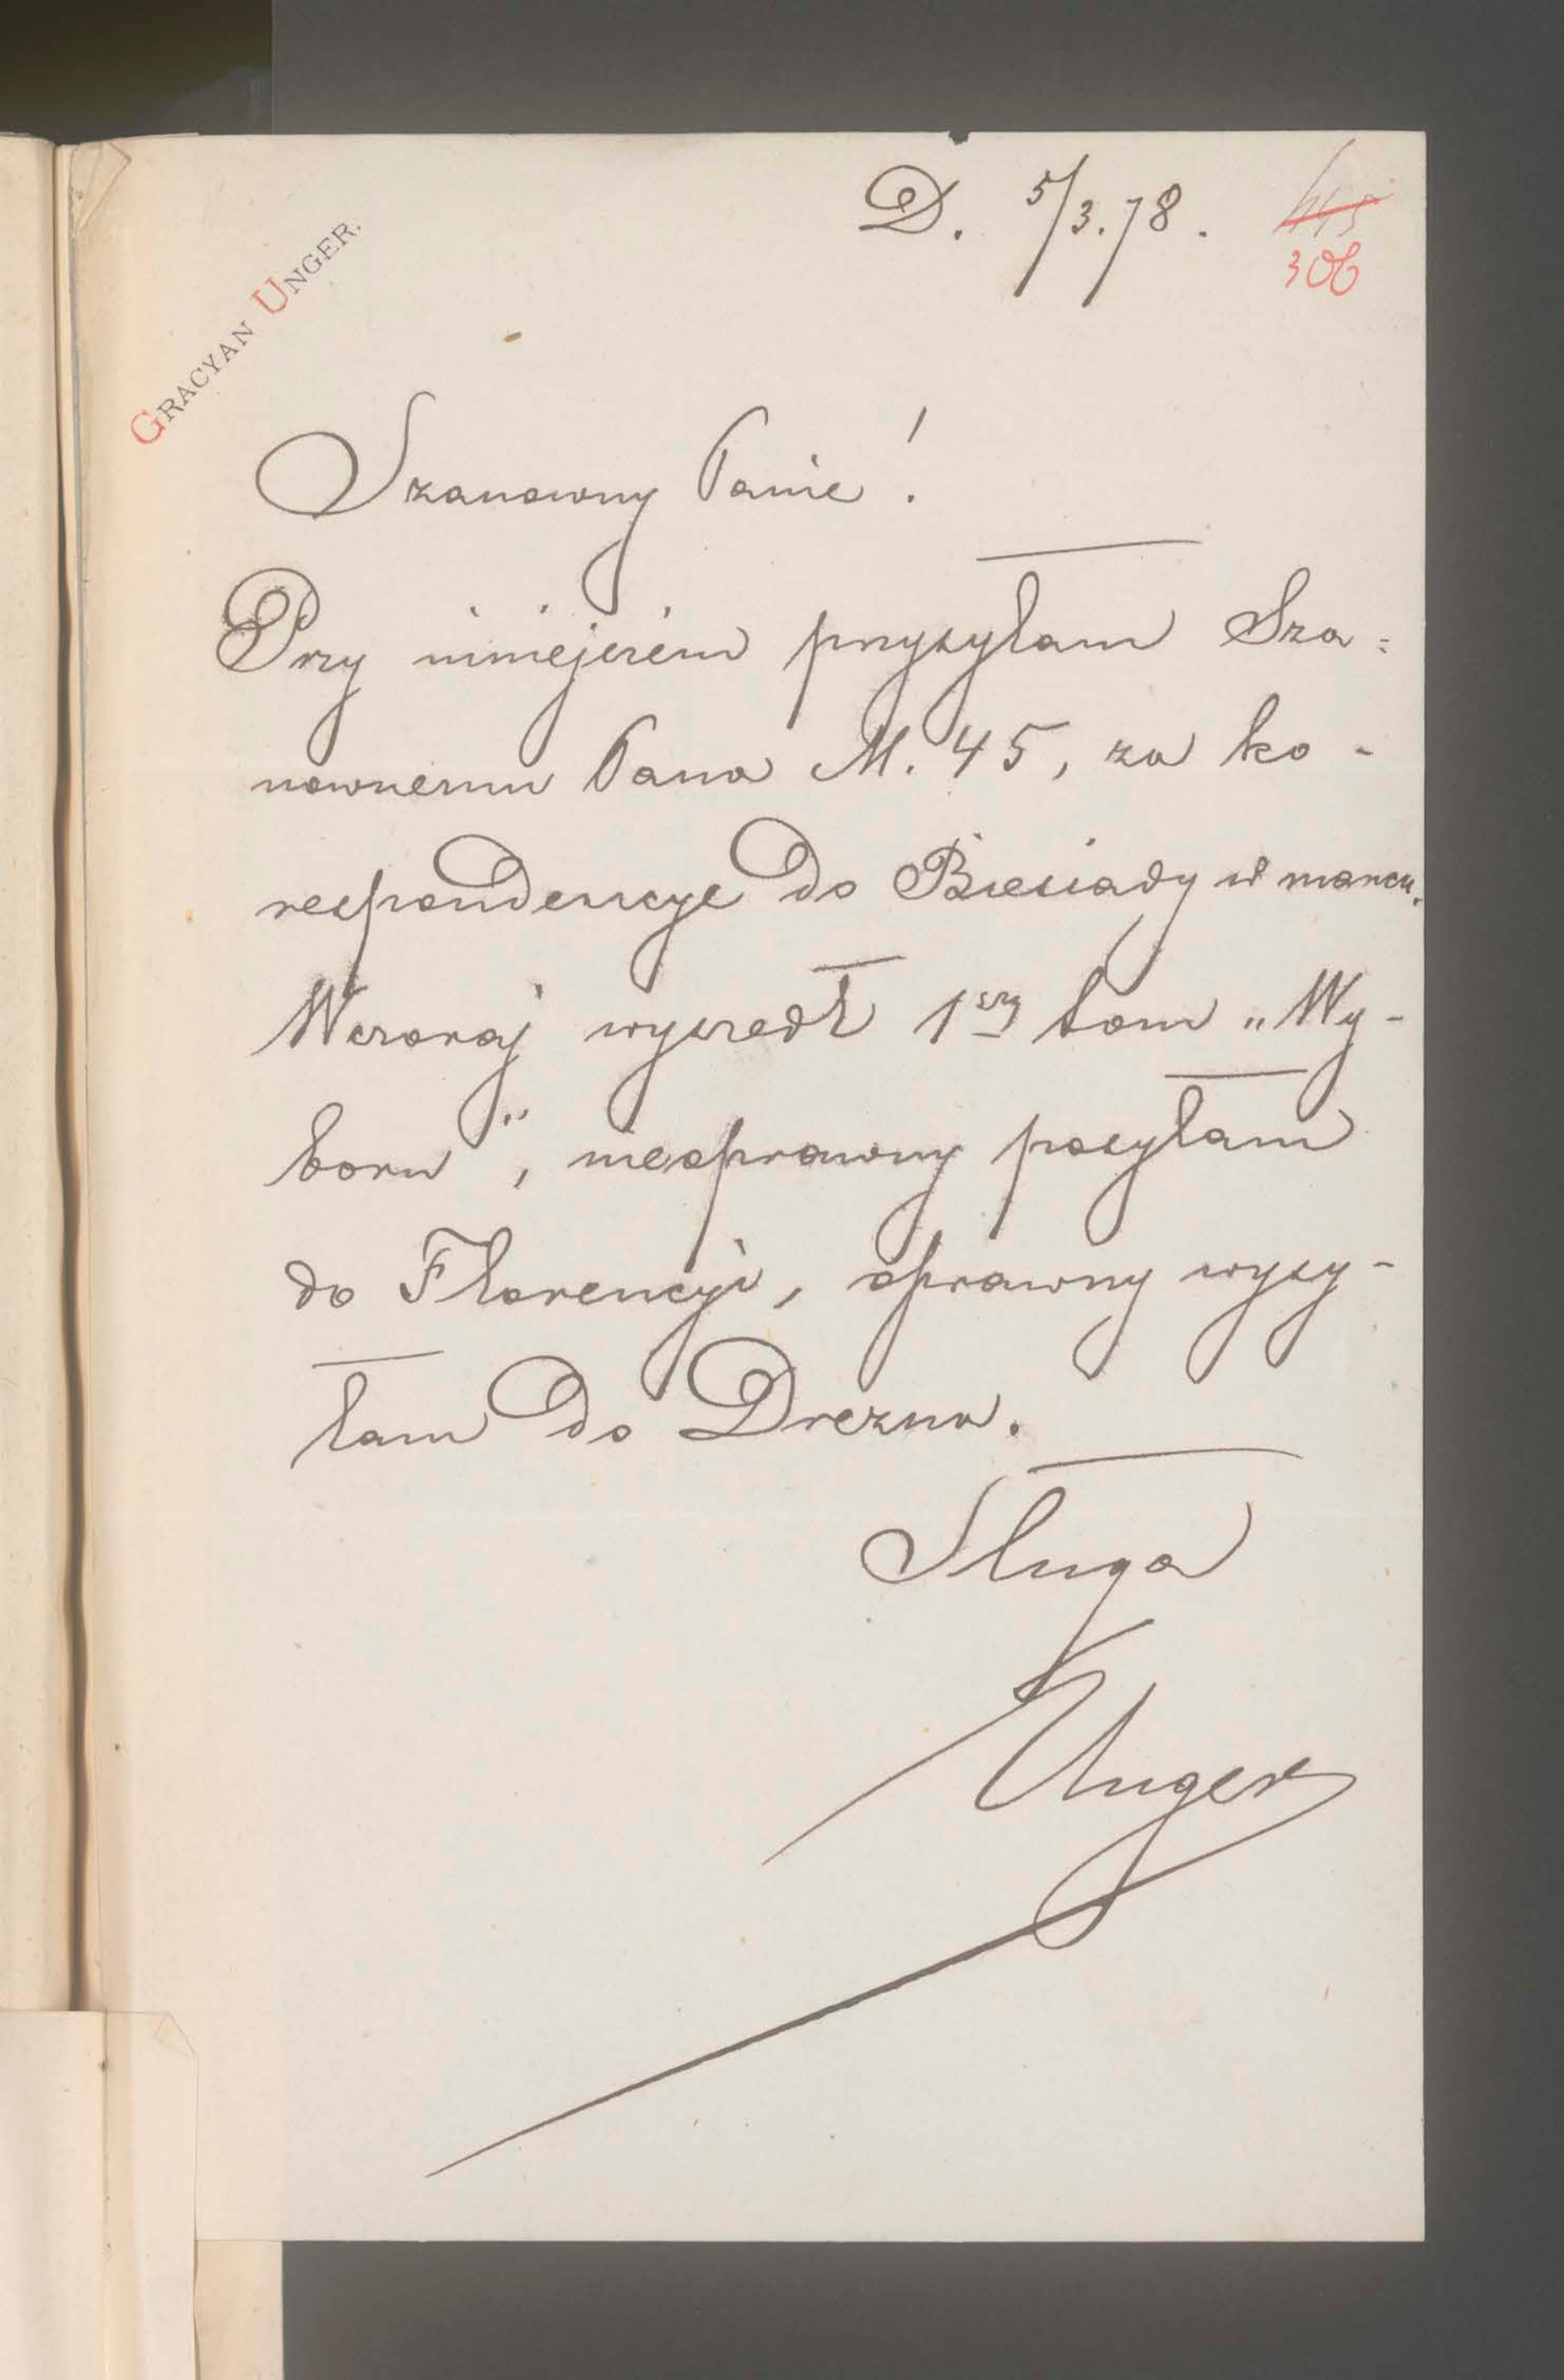 GRACYAN UNGER.
D. 5/3.78.
445
306
Szanowny Panie!
Przy niniejszém przysyłam Sza=
nownemu Pana M. 45, za ko-
respondencye do Biesiady w marcu.
Wczoraj wyszedł 1szy tom „Wy-
boru", nieoprawny posyłam
do Florencyi, oprawny wysy-
łam do Drezna.
Sługa
Unger